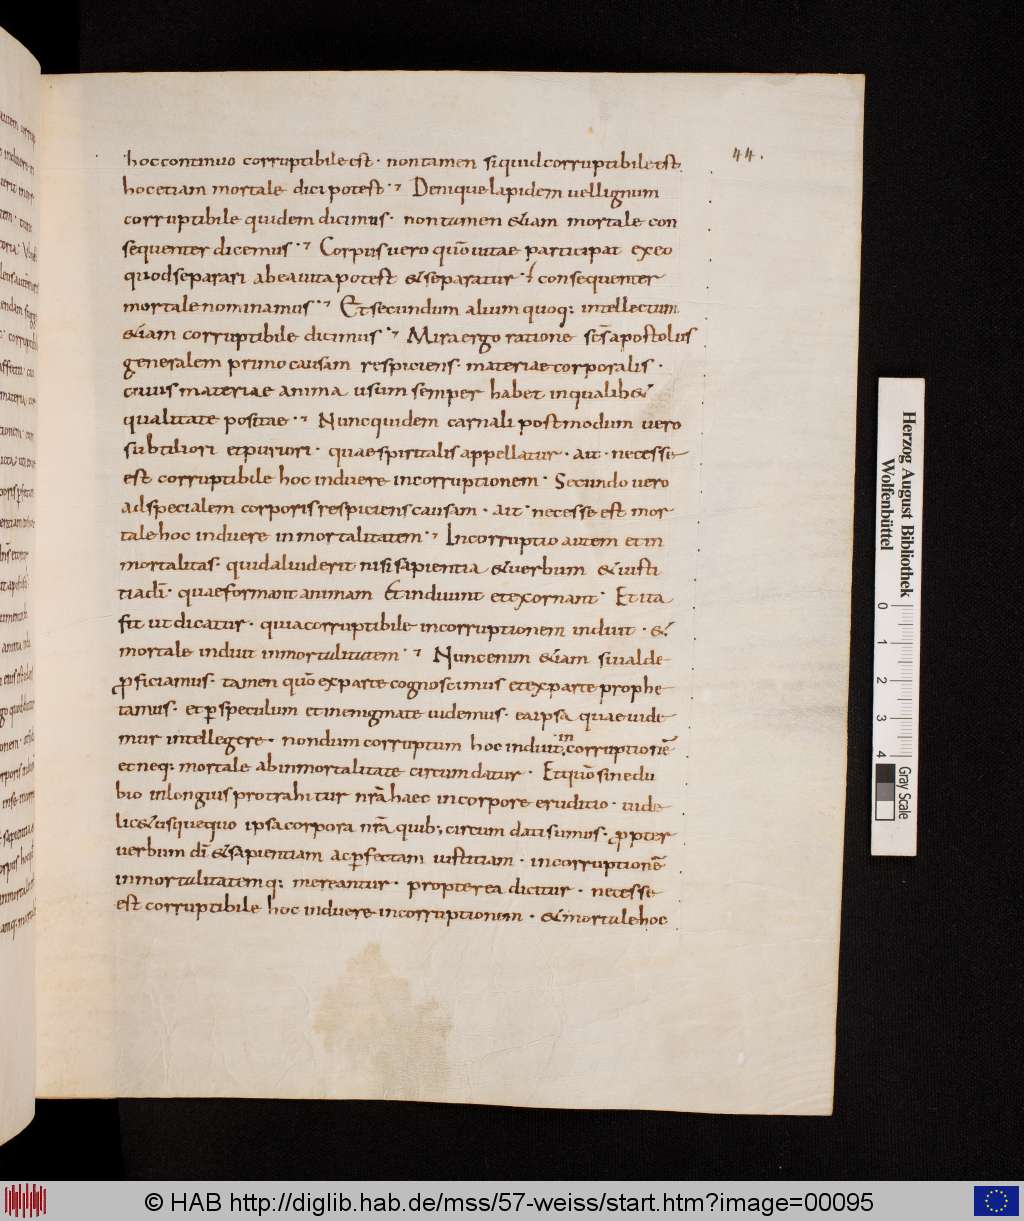 44.
hoc continuo corruptibile est · non tamen siquid corruptibile est
hoc etiam mortale dici potest · Denique lapidem vel lignum
corruptibile quidem dicimus · non tamen &iam mortale con
sequenter dicemus · Corpus vero quō vitae participat ex eo
quod separari ab ea vita potest & separatur consequenter
mortale nominamus · Et secundum alium quoq; intellectum
&iam corruptibile dicimus · Mira ergo ratione scs̄ apostolus
generalem primo causam respiciens · materiae corporalis ·
cuius materiae anima usum semper habet in qualib&
qualitate positae · Nunc quidem carnali postmodum vero
subtiliori et puriori · quae spiritalis appellatur · ait · necesse
est corruptibile hoc induere incorruptionem · Secundo vero
ad specialem corporis respiciens causam · ait · necesse est mor
tale hoc induere inmortalitatem · Incorruptio autem et in
mortalitas · quid aliud erit nisi sapientia & verbum & iusti
tia dī · quae formant animam Et induunt et exornant · Et ita
fit ut dicatur · quia corruptibile incorruptionem induit · &
mortale induit inmortalitatem · Nunc enim &iam si valde
ꝓficiamus · tamen quō ex parte cognoscimus et ex parte prophe
tamus · et ꝑ speculum et in enigmate videmus · ea ipsa quae vide
mur intellegere · nondum corruptum hoc induit incorruptionē
et neq; mortale ab inmortalitate circumdatur · Et quō sine du
bio in longius protrahitur nr̄a haec in corpore eruditio · vide
lic& usque quo ipsa corpora nr̄a quib; circumdati sumus · ꝓpter
verbum dī & sapientiam ac ꝑfectam iustitiam · incorruptionē
inmortalitatemq; mereantur · propterea dicitur · necesse
est corruptibile hoc induere incorruptionem · & mortale hoc
Herzog August Bibliothek
Wolfenbüttel
0 1 2 3 4 Gray Scale
© HAB http://diglib.hab.de/mss/57-weiss/start.htm?image=00095